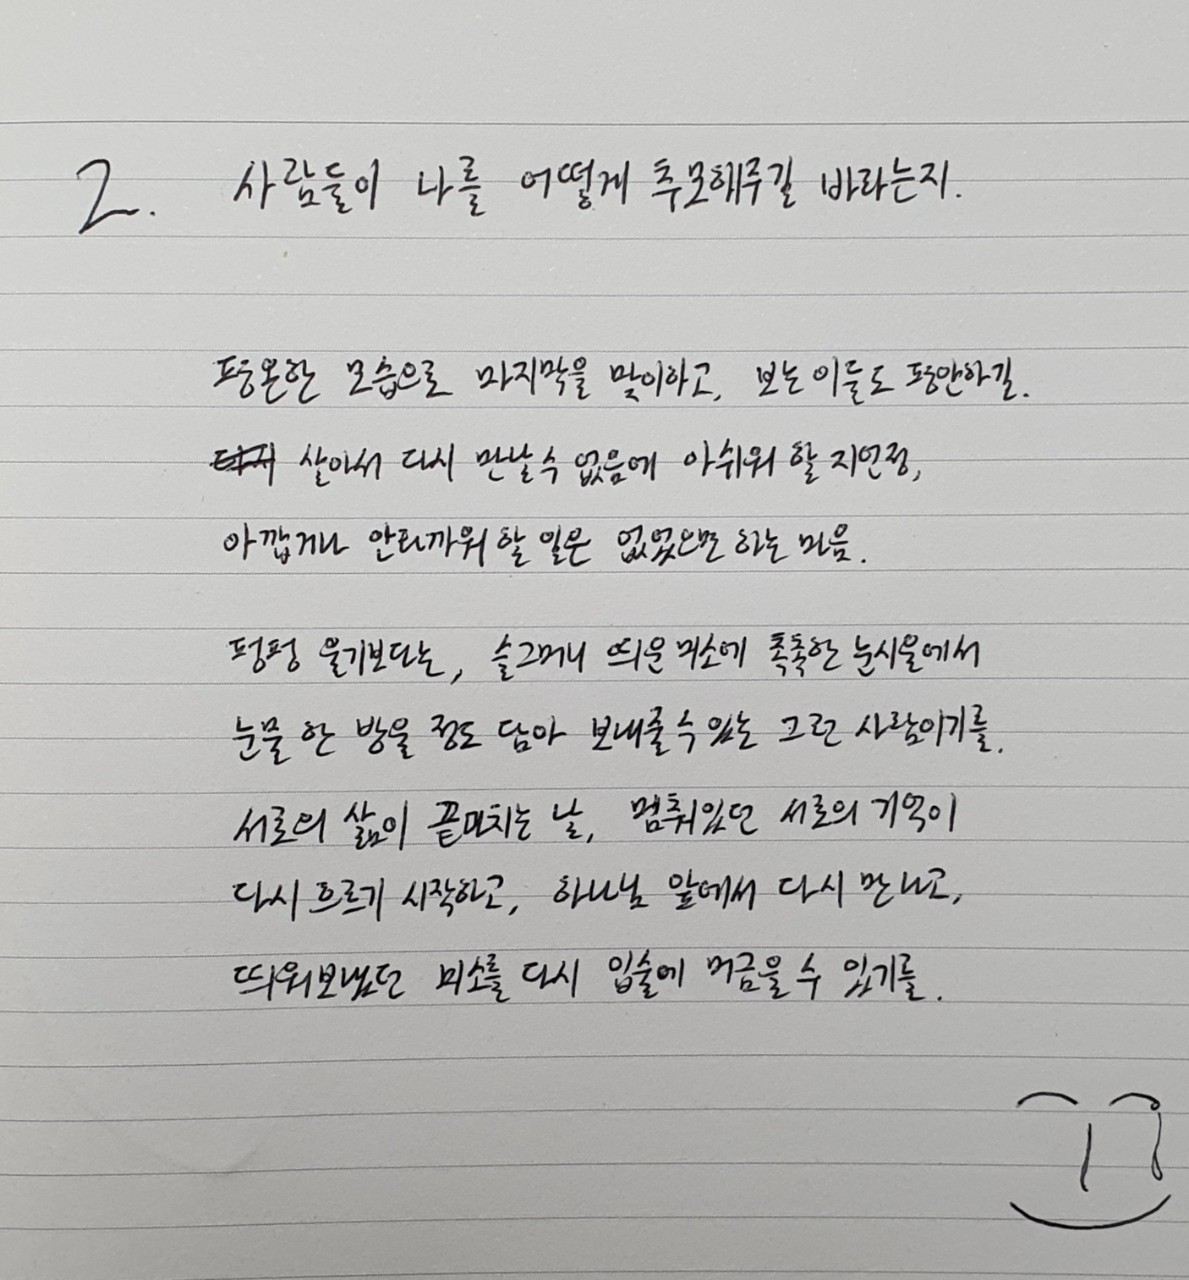 2. 사람들이 나를 어떻게 추모해주길 바라는지.
평온한 모습으로 마지막을 맞이하고, 보는 이들도 평안하길.
살아서 다시 만날 수 없음에 아쉬워 할 지언정,
아깝거나 안타까워 할 일은 없었으면 하는 마음.
펑펑 울기보다는, 슬그머니 띄운 미소에 촉촉한 눈시울에서
눈물 한 방울 정도 담아 보내줄 수 있는 그런 사람이기를.
서로의 삶이 끝마치는 날, 멈춰있던 서로의 기억이
다시 흐르기 시작하고, 하나님 앞에서 다시 만나고,
띄워보냈던 미소를 다시 입술에 머금을 수 있기를.